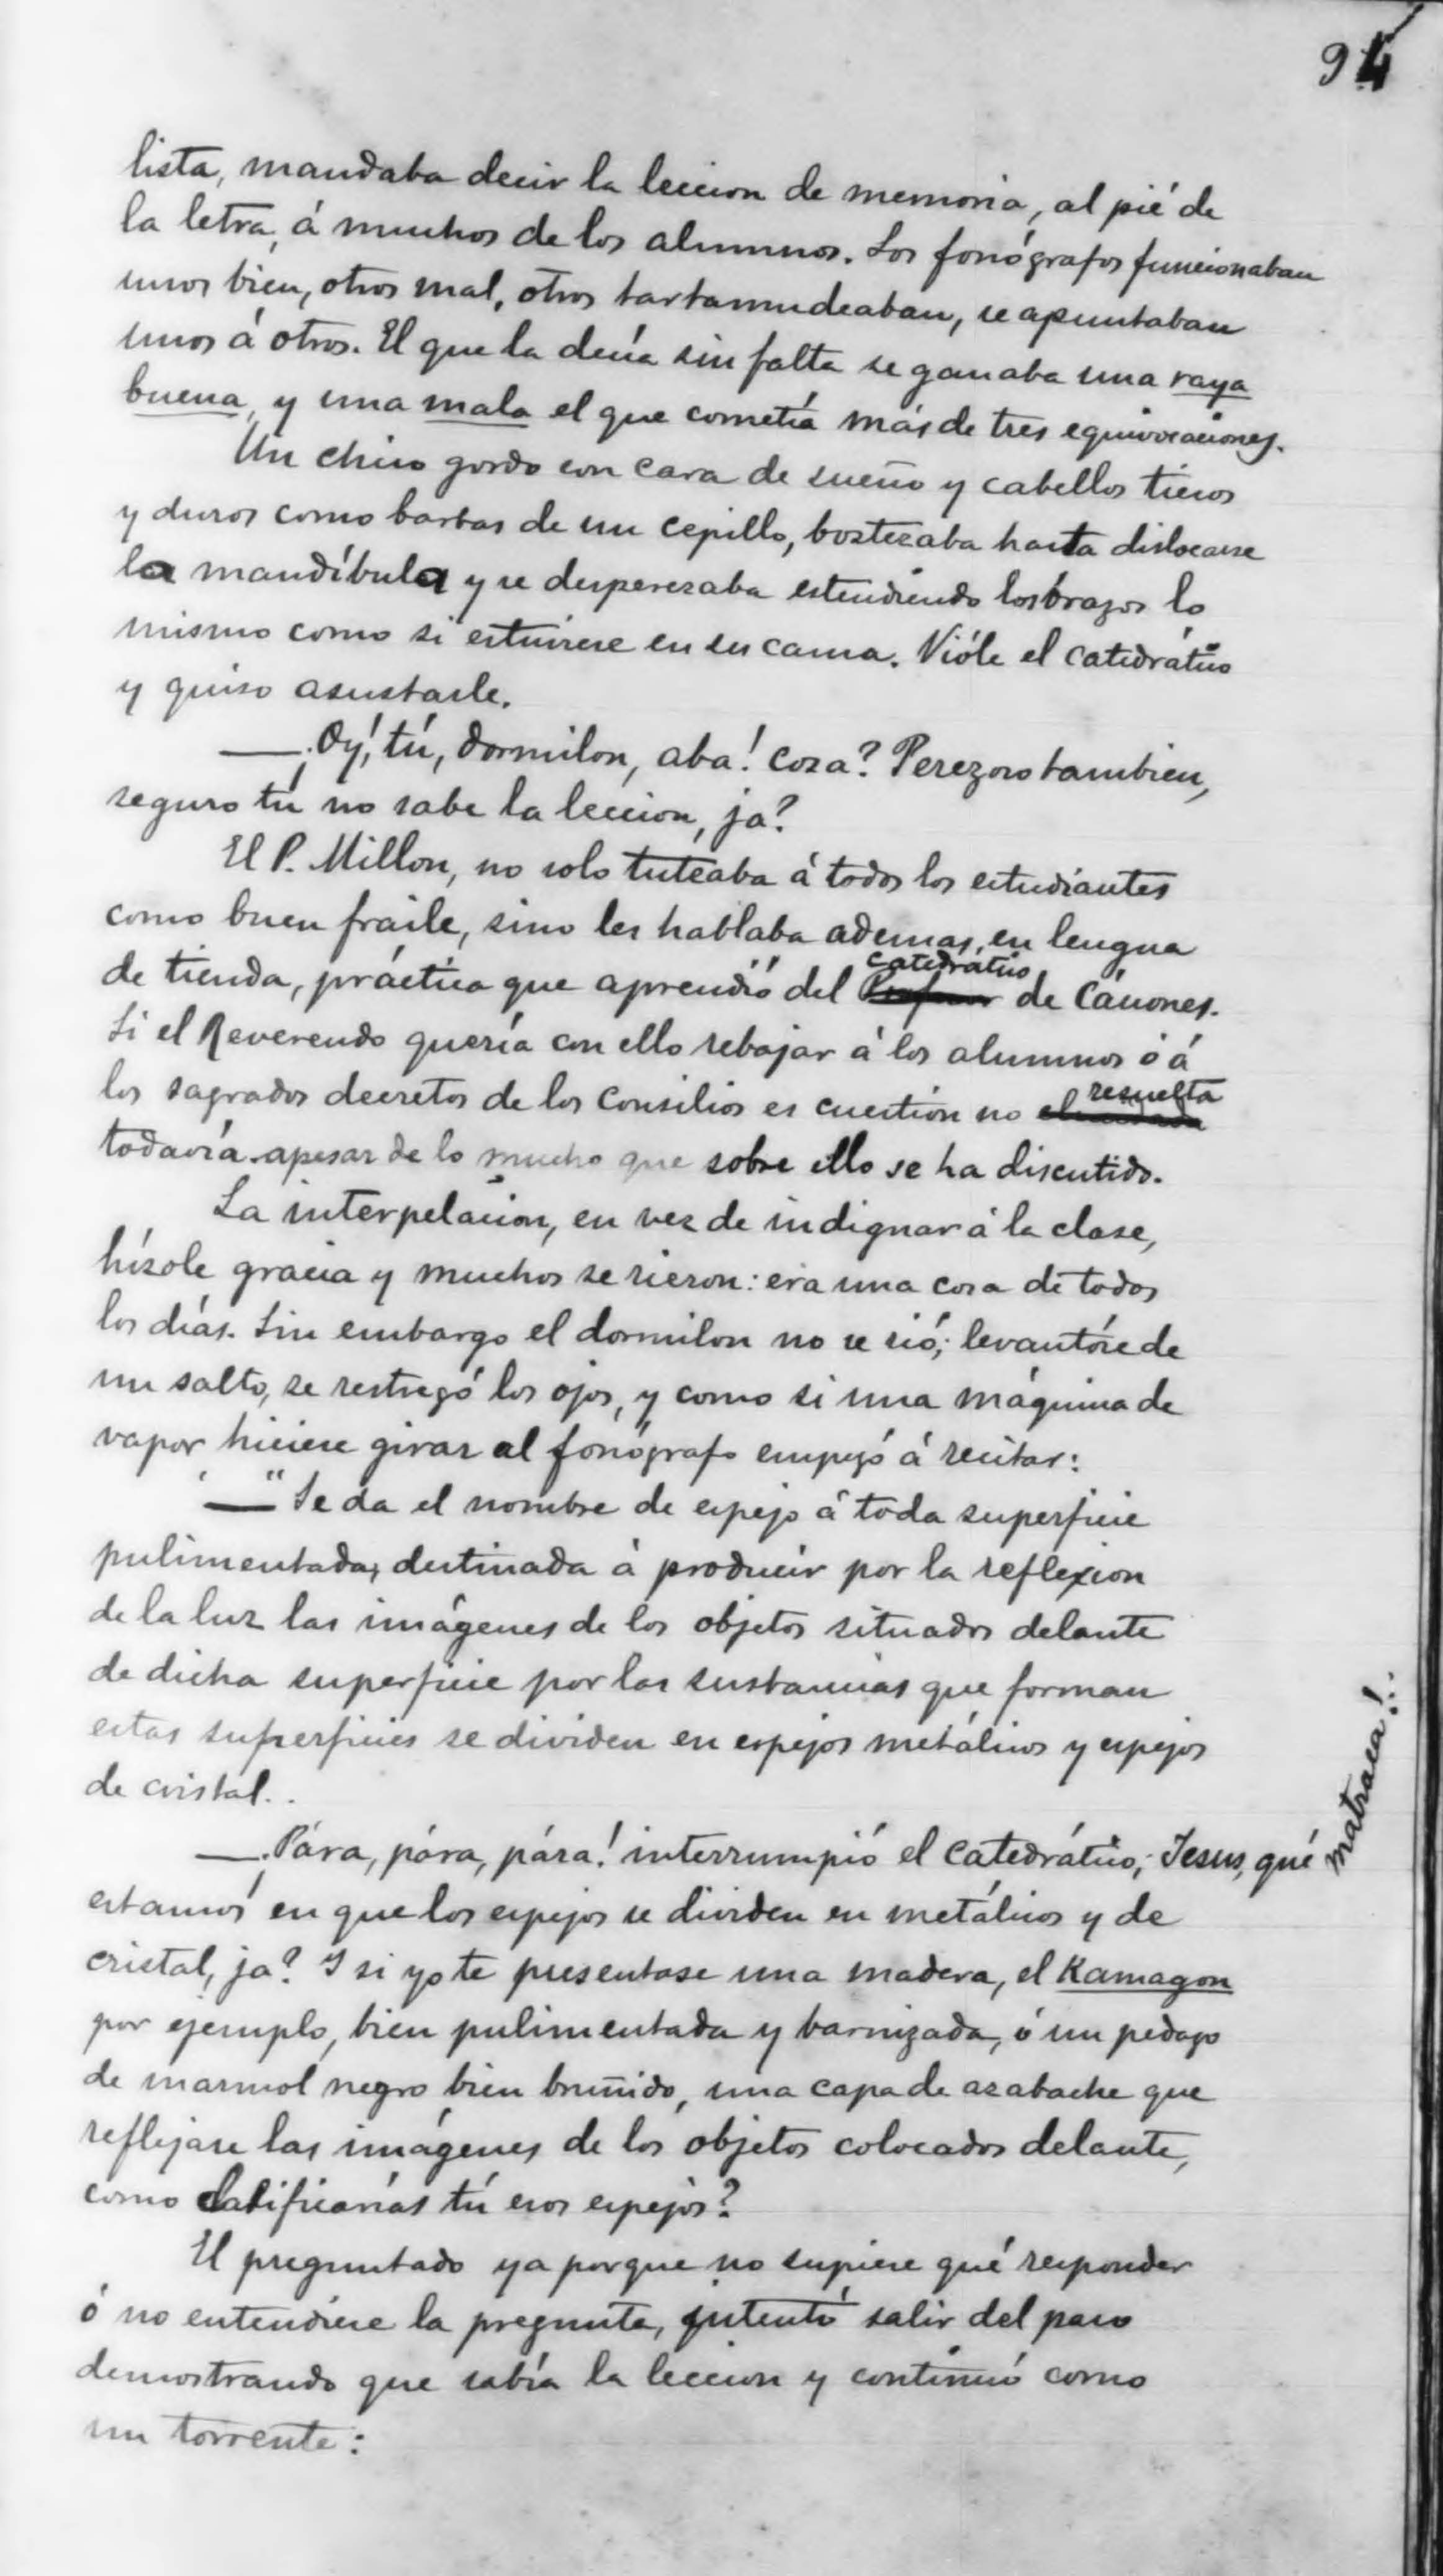 94
lista, mandaba decir la leccion de memoria, al pié de
la letra, á muchos de los alumnos. Los fonógrafos funcionaban
unos bien, otros mal, otros tartamudeaban, se apuntaban
unos á otros. El que la decía sin falta se ganaba una raya
buena, y una mala el que cometía más de tres equivocaciones.
Un chico gordo con cara de sueño y cabellos tiesos
y duros como barbas de un cepillo, bostezaba hasta dislocarse
la mandíbula y se desperezaba estendiendo los brazos lo
mismo como si estuviese en su cama. Vióle el catedrático
y quiso asustarle.
—¡Oy! tú, dormilon, aba! cosa? Perezoso tambien,
seguro tú no sabe la leccion, ja?
El P. Millon, no solo tuteaba á todos los estudiantes
como buen fraile, sino les hablaba ademas, en lengua
catedrático
de tienda, práctica que aprendió del Profesor de Cánones.
Si el Reverendo quería con ello rebajar á los alumnos ó á
resuelta
los sagrados decretos de los Consilios es cuestion no
todavía apesar de lo mucho que sobre ello se ha discutido.
La interpelacion, en vez de indignar á la clase,
hízole gracia y muchos se rieron: era una cosa de todos
los días. Sin embargo el dormilon no se rió; levantóse de
un salto, se restregó los ojos, y como si una máquina de
vapor hiciese girar al fonógrafo empezó á recitar:
—"Se da el nombre de espejo á toda superficie
pulimentada, destinada á producir por la reflexion
de la luz las imágenes de los objetos situados delante
de dicha superficie por las sustancias que forman
estas superficies se dividen en espejos metálicos y espejos
de cristal..
—¡Pára, pára, pára! interrumpió el catedrático; Jesus, qué
matraca!..
estamos en que los espejos se dividen en metálicos y de
cristal, ja? Y si yo te presentase una madera, el Kamagon
por ejemplo, bien pulimentada y barnizada, ó un pedazo
de marmol negro bien bruñido, una capa de azabache que
reflejase las imágenes de los objetos colocados delante,
como calificarías tú esos espejos?
El preguntado ya porque no supiese qué responder
ó no entendiese la pregunta, intentó salir del paso
demostrando que sabía la leccion y continuó como
un torrente: